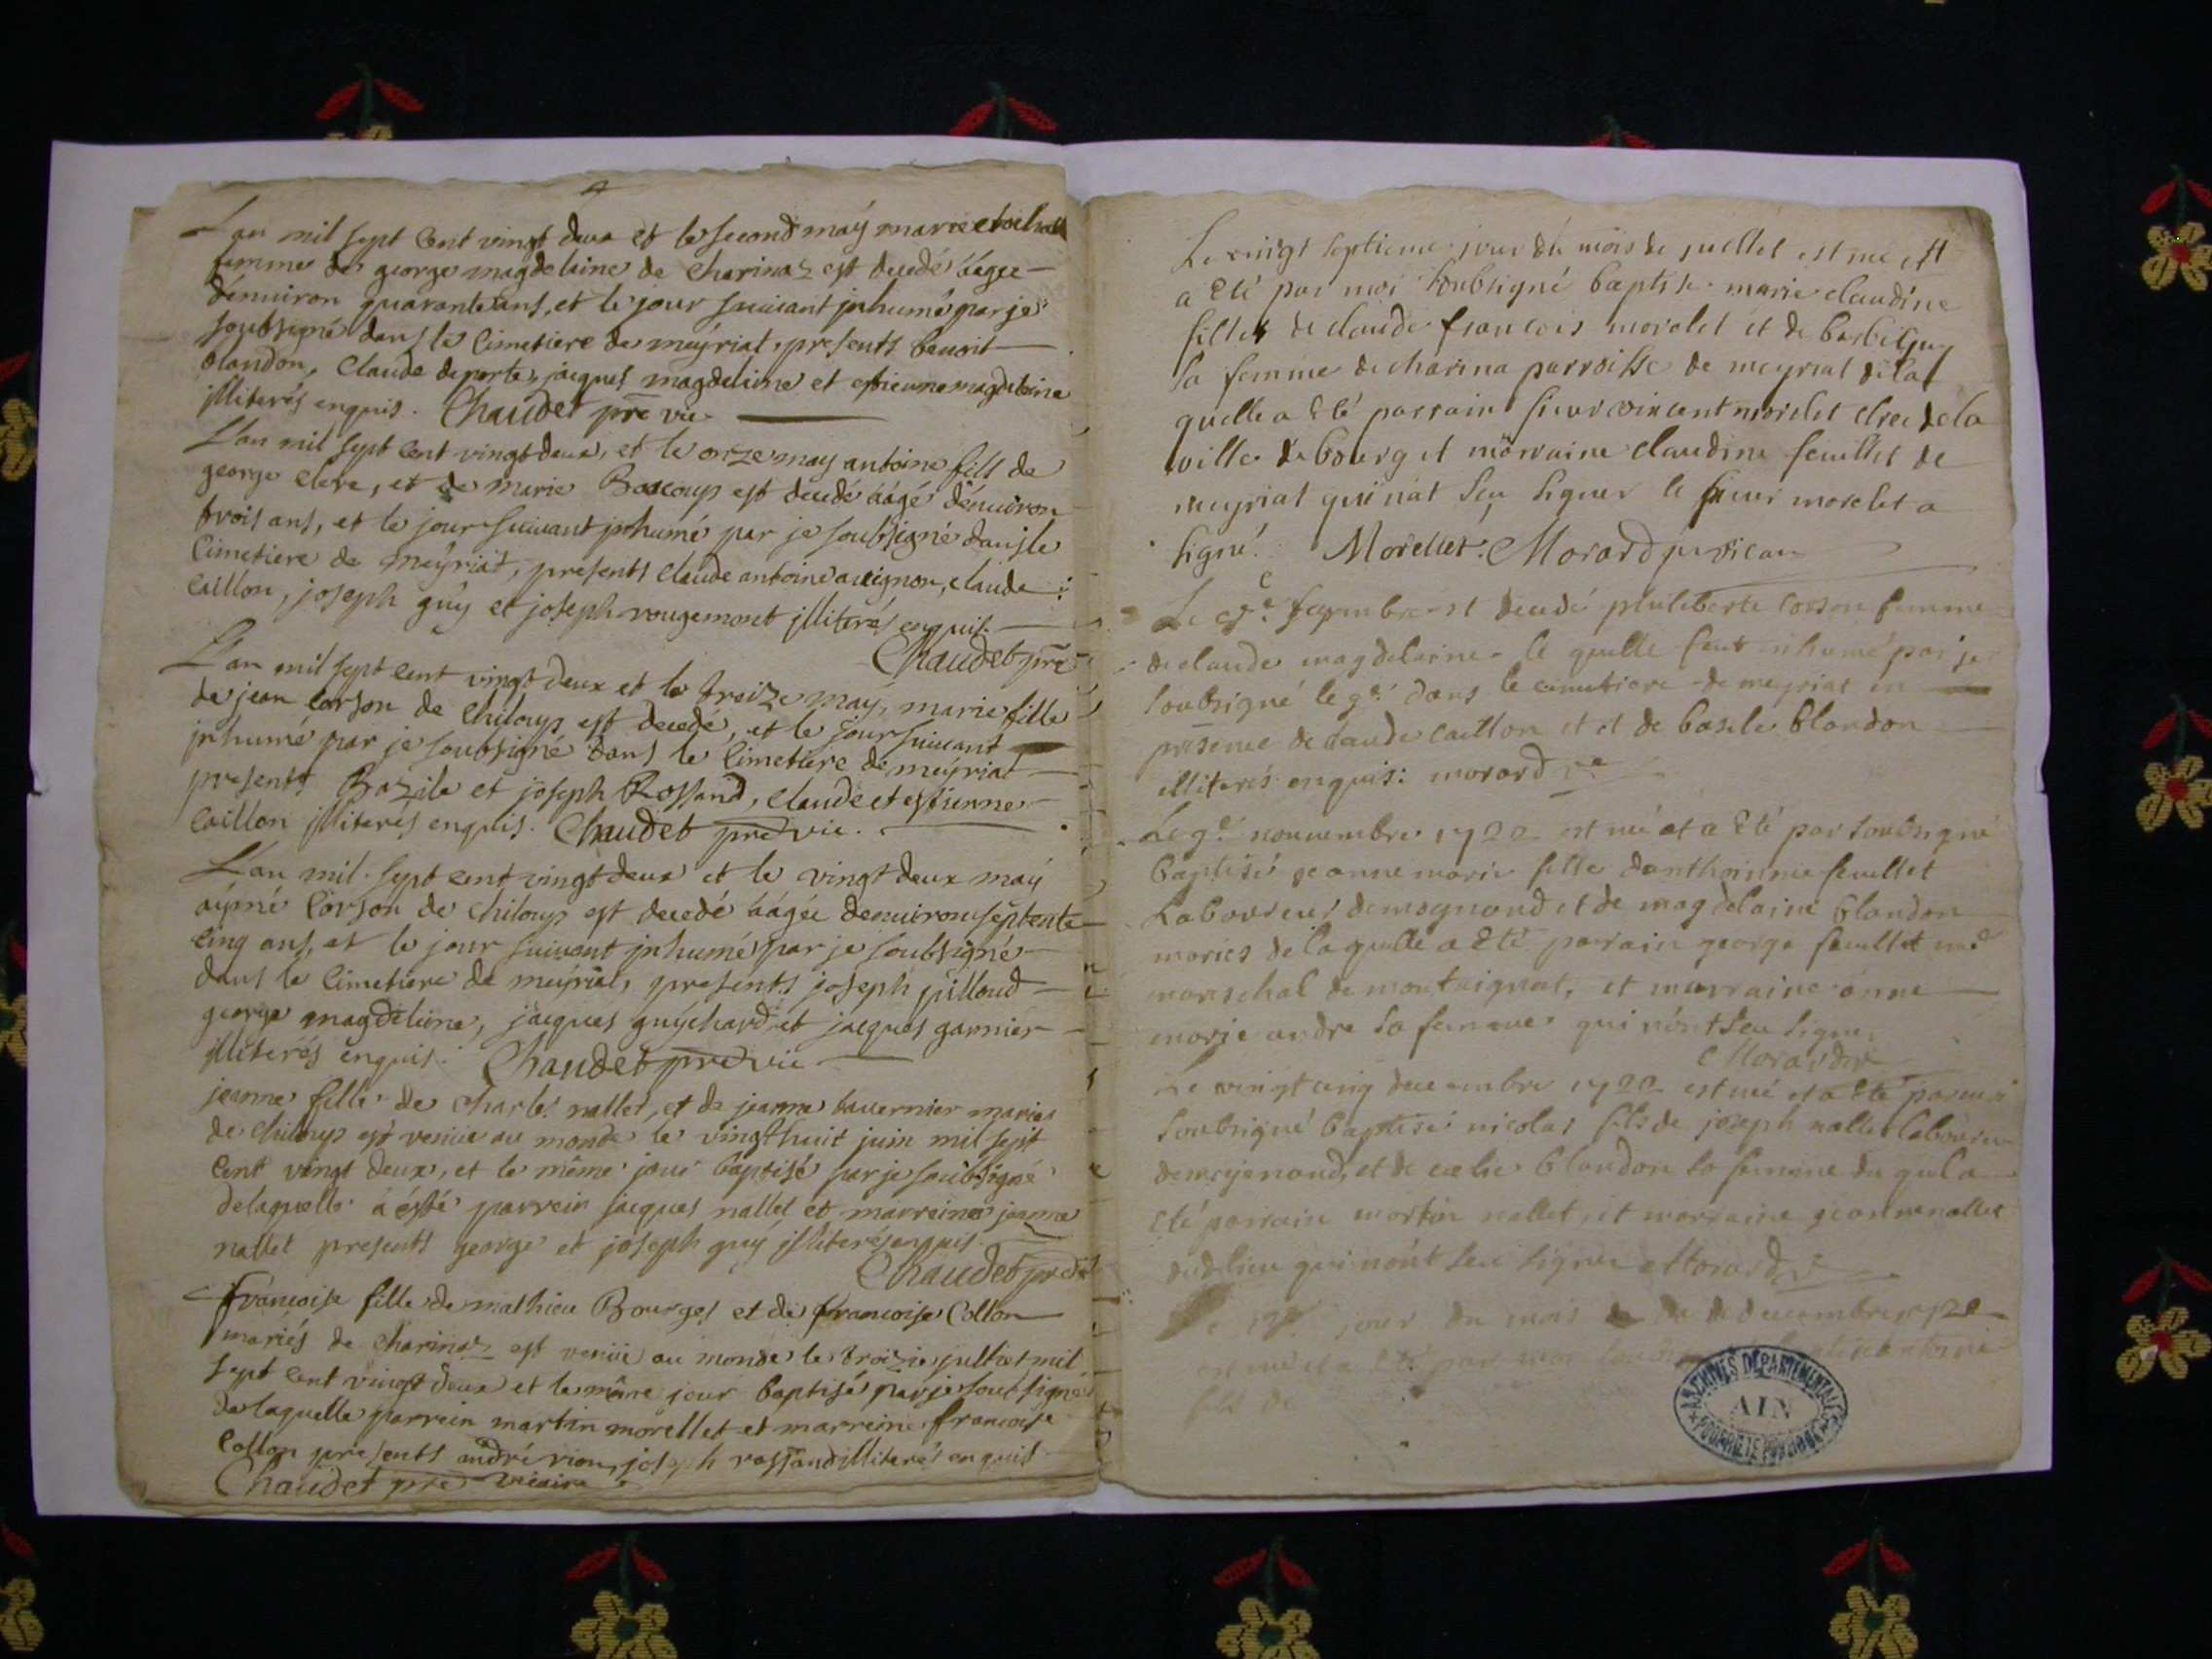 L'an mil sept cent vingt deux et le second maÿ marie
femme de george magdelaine de Charinaz est decedé áagee
denuiron quarante ans, et le jour suiuant jnhumé par je
soubsigné dans le Cimetiere de meÿriat, presents benoit
blandon, Claude deporte, jacques magdeleine et estienne magdeleine
jlliterés enquis. Chaudet pre vic.
L'an mil sept cent vingt deux, et le onze may antoine fill de
george clere, et de marie Bascoup est decedé áagé denuiron
trois ans, et le jour suiuant jnhumé par je soubsigné dans le
Cimetiere de meÿriat, presents claude antoine auignon, claude
caillon, joseph guÿ et joseph rougemont jlliterés enquis.
Chaudet pre
L'an mil sept cent vingt deux et le treize maÿ, marie fille
de jean corson de chiloup est decedé, et le jour suiuant
jnhumé par je soubsigné dans le Cimetiere de meÿriat
presents Bazile et joseph Rossand, claude et estienne
caillon jlliterés enquis. Chaudet pre vic.
L'an mil sept cent vingt deux et le vingt deux maÿ
aÿmé Corson de chiloup est decedé áagée denuiron septente
cinq ans, et le jour suiuant jnhumé par je soubsigné
dans le Cimetiere de meÿriat, presents joseph pilloud
george magdeleine, jacques guÿchard et jacques garnier
jlliterés enquis. Chaudet pre vic
jeanne fille de charles nallet, et de jeanne tavernier mariés
de chiloup est venüe au monde le vingt huit juin mil sept
cent vingt deux, et le même jour baptisé par je soubsigné
delaquelle á ésté parrein jacques nallet et marreine jeanne
nallet presents george et joseph guÿ jlliterés enquis
Chaudet pre
françoise fille de mathieu Bourges et de francoise Collon
mariés de charinaz est venüe au monde le troizie julliet mil
sept cent vingt deux et le même jour baptisé par je soubsigné
de laquelle parrein martin morellet et marreine francoise
Collon presents andré rion, joseph rossand jlliterés enquis
Chaudet pre vicaire
Le vingt septieme jour du mois de juellet est née et
a été par moi soubsigné baptisé marie claudine
filles de claude francois morelet et de
sa femme de charina parroisse de meyriat de la
quelle a été parrain sieur vincent morelet de la
ville de bourg et marraine claudine feuillet de
meyriat qui nat seu signer le sieur morelet a
signé. Morellet. Morard vicaire
Le est decedé philiberte corson femme
de claude magdelaine le quelle feut inhumé par je
soubsigné le dans le cimetiere de meyriat en
présence de claude caillon et et de basile blandon
illiterés enquis: morard
Le 9e nouuembre 1722 est né et a été par soubsigné
baptisé jeanne marie fille danthoinnie feuillet
laboureur et de magdelaine blandon
mariés de laquelle a été parrain george feuillet
mareschal de montaignat, et marraine anne
marie andre sa femme qui n'ont seu signer
Morard
Le vingt cinq decembre 1722 est né et a été par moi
soubsigné baptisé nicolas fils de joseph nallet laboureur
et de blandon sa femme du quel a
été parrain martin nallet, et marraine jeanne nallet
dud lieu qui n'ont seu signer Morard
jour du mois de decembre
est né et a été par moi
fils de
ARCHIVES DÉPARTEMENTALES
AIN
PROPRIÉTÉ PUBLIQUE